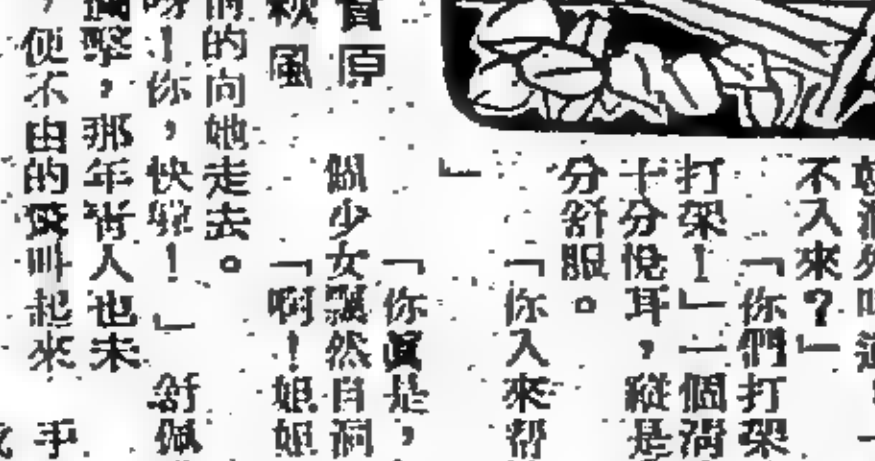 不入來？」
「你們打架
打架！」一個
十分悅耳，縱是
分舒服。
「你入來帮
」
「你眞是，
個少女飄然自洞
「啊！姐姐
原
秋風
的向她走去。
呀！你，快
！」　舒佩
擊，那年青人也未
，便不由的叫起來
手